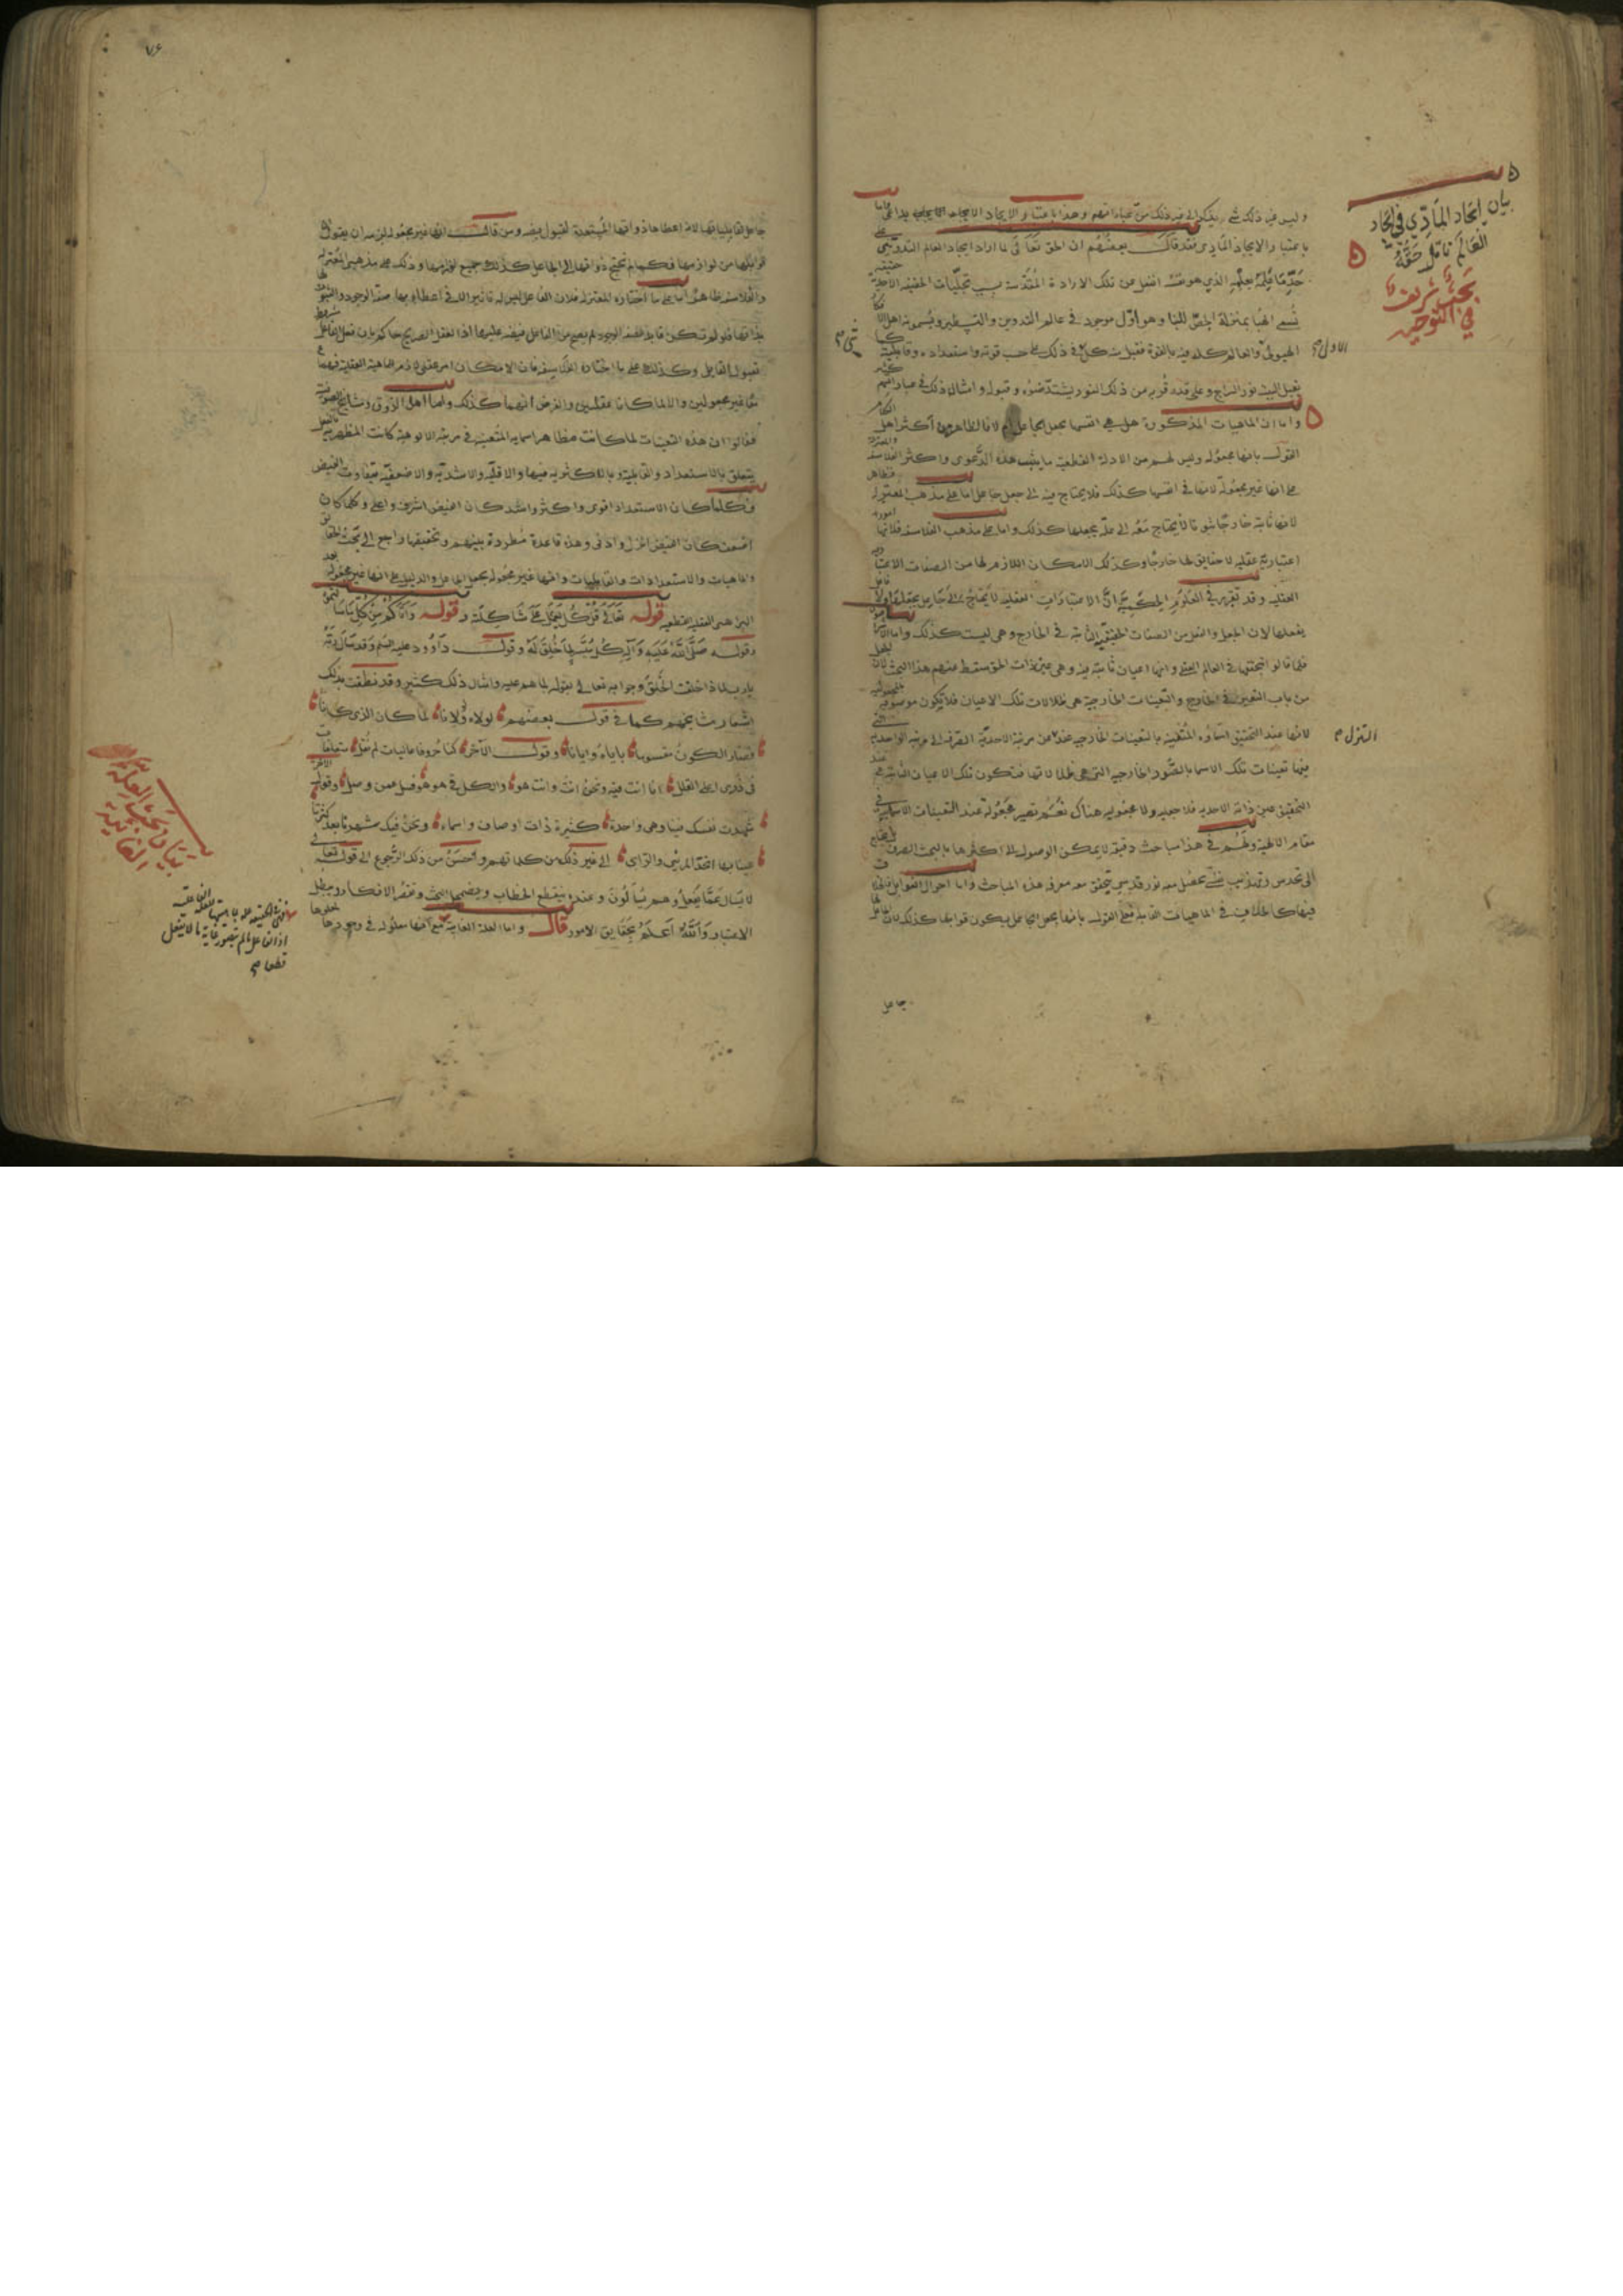 بيان ايجاد المادي في ايجاد
العالم تأمل حقه
بحث شريف
في التوحيد
وليس فيه ذلك شيء الى غير ذلك من عباراتهم وهذا باعتبار الايجاد
باعتبار الايجاد المادي فقد قال بعضهم ان الحق تعالى لما اراد ايجاد العالم التدويني على
حد ما علمه بعلمه الذي هو نفسه انفعل عن تلك الارادة المقدسة بسبب تجليات الحقيقة الاحدية حقيقة
تسمى الهبا بمنزلة الجص للبنا وهو اول موجود في عالم التدوين والتسطير ويسمونه اهل
الهيولى والعالم كله فيه بالقوة فقبل منه كل في ذلك على حسب قوته واستعداده وقابليته كما
يقبل البيت نور السراج وعلى قدر قربه من ذلك النور يشتد ضوءه وقبوله وامثال ذلك في عباراتهم كثير
واما ان الماهيات المذكورة هل هي انفسها بجعل الجاعل ام لا فالظاهر من اكثر اهل الكلام
القول بانها مجعولة وليس لهم من الادلة القطعية ما يثبت هذه الدعوى واكثر الفلاسفة
على انها غير مجعولة لانها في انفسها كذلك فلا يحتاج فيه الى جعل جاعل اما على مذهب المعتزلة فظاهر
لانها ثابتة خارجا ثبوتا لا يحتاج معه الى علة يجعلها كذلك واما على مذهب الفلاسفة فلانها امور
اعتبارية عقلية لا حقايق لها خارجا وكذلك الامكان اللازم لها من الصفات الاعتبارية
العقلية وقد تقرر في العلوم الحكمية ان الاعتبارات العقلية لا يحتاج الى خارج
يفعلها لان الجعل والفعل من الصفات الحقيقية الثابتة في الخارج وهي ليست كذلك واما
فلما قالوا بتحققها في العالم العلمي وانها اعيان ثابتة فيه وهي عين ذات الحق سقط عنهم هذا البحث لان الجعل
من باب التعين في الخارج والتعينات الخارجية هي ظلالات تلك الاعيان فلا يكون موصوفة بالمجعولية
لانها عند التحقيق اسماؤه المتعينة بالتعينات الخارجية عند من مرتبة الاحدية الصرفة الى مرتبة الواحدية
التنزل
فيها تعينات تلك الاسماء بالصور الخارجية التي هي ظلالاتها فتكون تلك الاعيان الثابتة عند
التحقيق عين ذاته الاحدية فلا جعلية ولا مجعولية هناك نعم تصير مجعولة عند التعينات الاسمائية في
مقام الالهية ولهم في هذا مباحث دقيقة لا يمكن الوصول الى اكثرها بالبحث الصرف بل يحتاج
الى تحدس وتهذيب نفس يحصل معه نور قدسي يتحقق معه معرفة هذه المباحث واما احوال القوابل
فيها كالخلاف في الماهيات القابلة فعلى القول بانها بجعل الجاعل يكون قوابلها كذلك لان الجاعل
جاعل
٧٦
جاعل لقابلياتها لانه اعطاها ذواتها المستعدة لقبول فيضه ومن قال انها غير مجعولة لزمه ان يقول ان
قوابلها من لوازمها فكما لم تحتج ذواتها الى الجاعل كذلك جميع لوازمها وذلك على مذهبي المعتزلة
والفلاسفة ظاهر اما على ما اختاره المعتزلة فلان الفاعل ليس له تاثير الا في اعطاء بها صفة الوجود
بذاتها فلو لم تكن قابلة لصفة الوجود لم يصح من الفاعل فيضه عليها اذ العقل الصريح حاكم بان فعل الفاعل مشروط
بقبول القابل وكذلك على ما اختاره الفلاسفة فان الامكان امر عقلي لازم للماهية العقلية فهما
معا غير مجعولين والا لما كانا عقليين والفرض انهما كذلك واما اهل الذوق ومشايخ الصوفية
فقالوا ان هذه التعينات لما كانت مظاهر اسمايه المتعينة في مرتبة الالوهية كانت المظهرية
يتعلق بالاستعداد والقابلية وبالاكثرية فيها والاقلية والاشدية والاضعفية يتفاوت الفيض
فكلما كان الاستعداد اقوى واكثر واشد كان الفيض اشرف واعلى وكلما كان
اضعف كان الفيض انزل وادنى وهذه قاعدة مطردة بينهم وتحقيقها راجع الى بحث
والماهيات والاستعدادات والقابليات وانها غير مجعولة بجعل الجاعل والدليل على انها غير مجعولة
البراهين العقلية القطعية قوله تعالى قل كل يعمل على شاكلته وقوله وآتاكم من كل ما سالتموه
وقوله صلى الله عليه وآله كل ميسر لما خلق له وقول داوود عليه السلم وقد سال ربه
يا رب لما ذا خلقت الخلق وجوابه تعالى بقوله لما هم عليه وامثال ذلك كثير وقد نطقت بذلك
اشعار مشايخهم كما في قول بعضهم لولاه ولولانا لما كان الذي كانا
وصار الكون مقسوما باياه وايانا وقول الآخر كنا حروفا عاليات لم نقل متعلقات
في ذرى اعلى القلل انا انت فيه ونحن انت وانت هو والكل في هو هو فسل عمن وصل وقول الآخر
شهدت نفسك فينا وهي واحدة كثيرة ذات اوصاف واسماء ونحن فيك شهدنا بعد كثرتنا
عينا بها اتحد المرئي والرائي الى غير ذلك من كلماتهم واحسن من ذلك الرجوع الى قوله تعالى
لا يسال عما يفعل وهم يسالون وعنده ينقطع الخطاب ويضمحل البحث وتقصر الافكار ويبطل
الاعتبار والله اعلم بحقايق الامور قال واما العلة الغائية فمع انها معلولة في وجودها
بيان بحث العلة
الغائية
اذ الفاعل ما لم يتصور غاية ما لا يفعل
قطعا